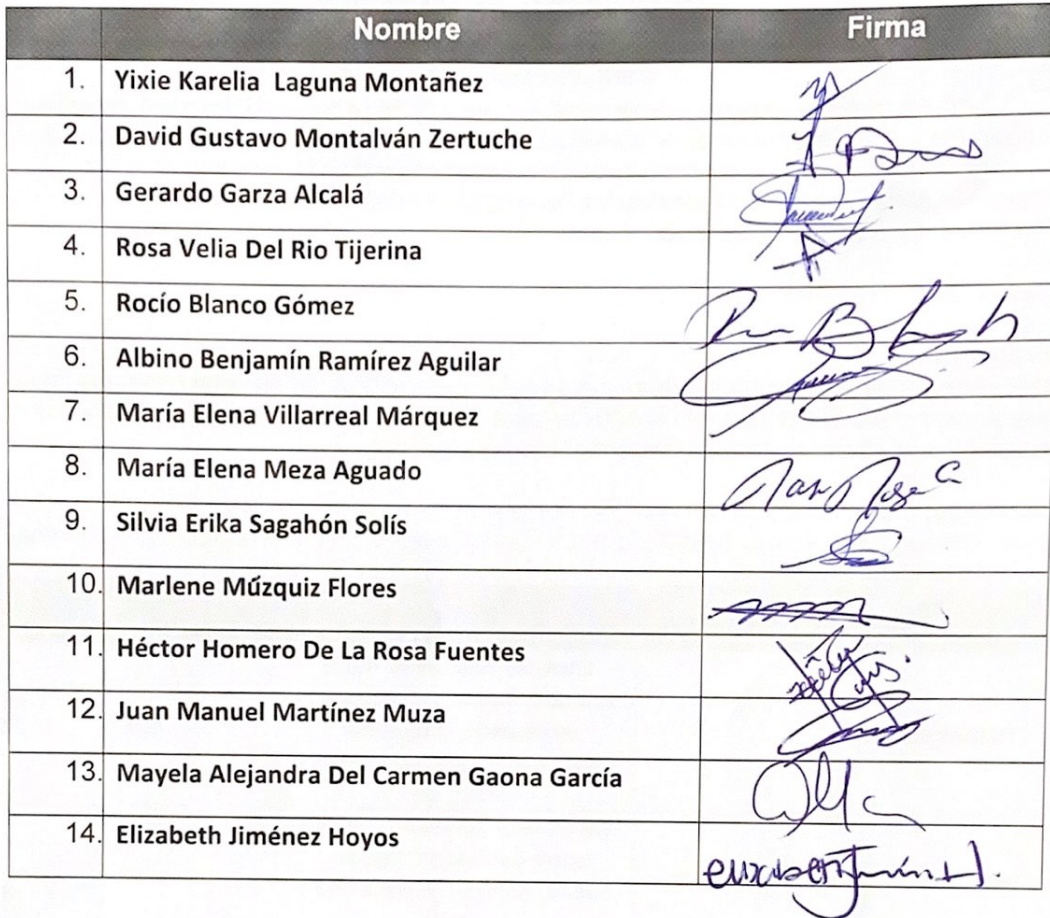 Nombre Firma
1. Yixie Karelia Laguna Montañez
2. David Gustavo Montalván Zertuche
3. Gerardo Garza Alcalá
4. Rosa Velia Del Rio Tijerina
5. Rocío Blanco Gómez
6. Albino Benjamín Ramírez Aguilar
7. María Elena Villarreal Márquez
8. María Elena Meza Aguado
9. Silvia Erika Sagahón Solís
10. Marlene Múzquiz Flores
11. Héctor Homero De La Rosa Fuentes
12. Juan Manuel Martínez Muza
13. Mayela Alejandra Del Carmen Gaona García
14. Elizabeth Jiménez Hoyos